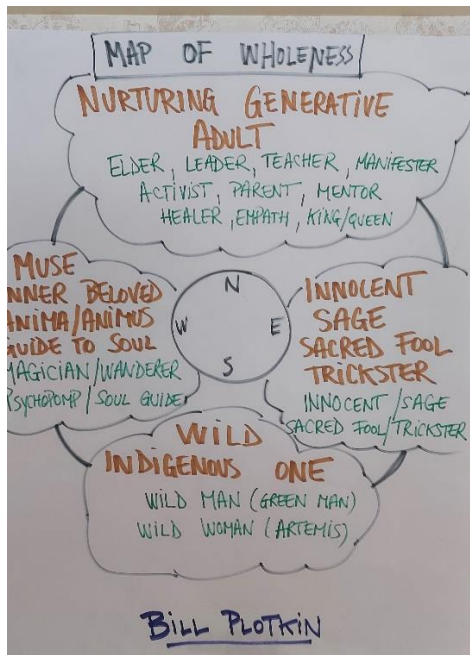 MAP OF WHOLENESS
NURTURING GENERATIVE
ADULT
ELDER, LEADER, TEACHER, MANIFESTER
ACTIVIST, PARENT, MENTOR
HEALER, EMPATH, KING/QUEEN
MUSE
NNER BELOVED
ANIMA/ANIMUS
GUIDE TO SOUL
MAGICIAN/WANDERER
PSYCHOPOMP/SOUL GUIDE
N
W
E
S
INNOCENT
SAGE
SACRED FOOL
TRICKSTER
INNOCENT/SAGE
SACRED FOOL/TRICKSTER
WILD
INDIGENOUS ONE
WILD MAN (GREEN MAN)
WILD WOMAN (ARTEMIS)
BILL PLOTKIN